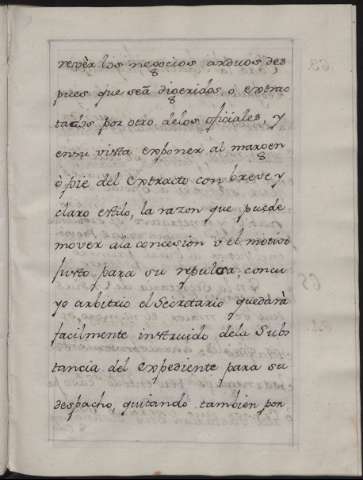 reveèr los negocios arduos des
pues que seã digeridos, ô extrac
tados por otro delos oficiales, y
en su vista exponer al margen
ò pie del extracto con breve y
claro estilo, la razon que puede
mover ala concesion ò el motivo
justo para su repulsa; con cu
yo arbitrio el Secretario quedarà
facilmente instruido dela Subs
tancia del expediente para su
despacho, quitando tambien por